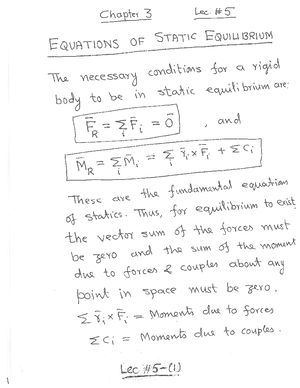 Chapter 3 Lec. #5
EQUATIONS OF STATIC EQUILIBRIUM
The necessary conditions for a rigid
body to be in static equilibrium are:
F̄_R = Σ_i F̄_i = 0̄ , and
M̄_R = Σ_i M̄_i = Σ_i r̄_i × F̄_i + Σ C_i
These are the fundamental equations
of statics. Thus, for equilibrium to exist
the vector sum of the forces must
be zero and the sum of the moment
due to forces & couples about any
point in space must be zero.
Σ r̄_i × F̄_i = Moments due to forces
Σ C_i = Moments due to couples.
Lec #5-(1)